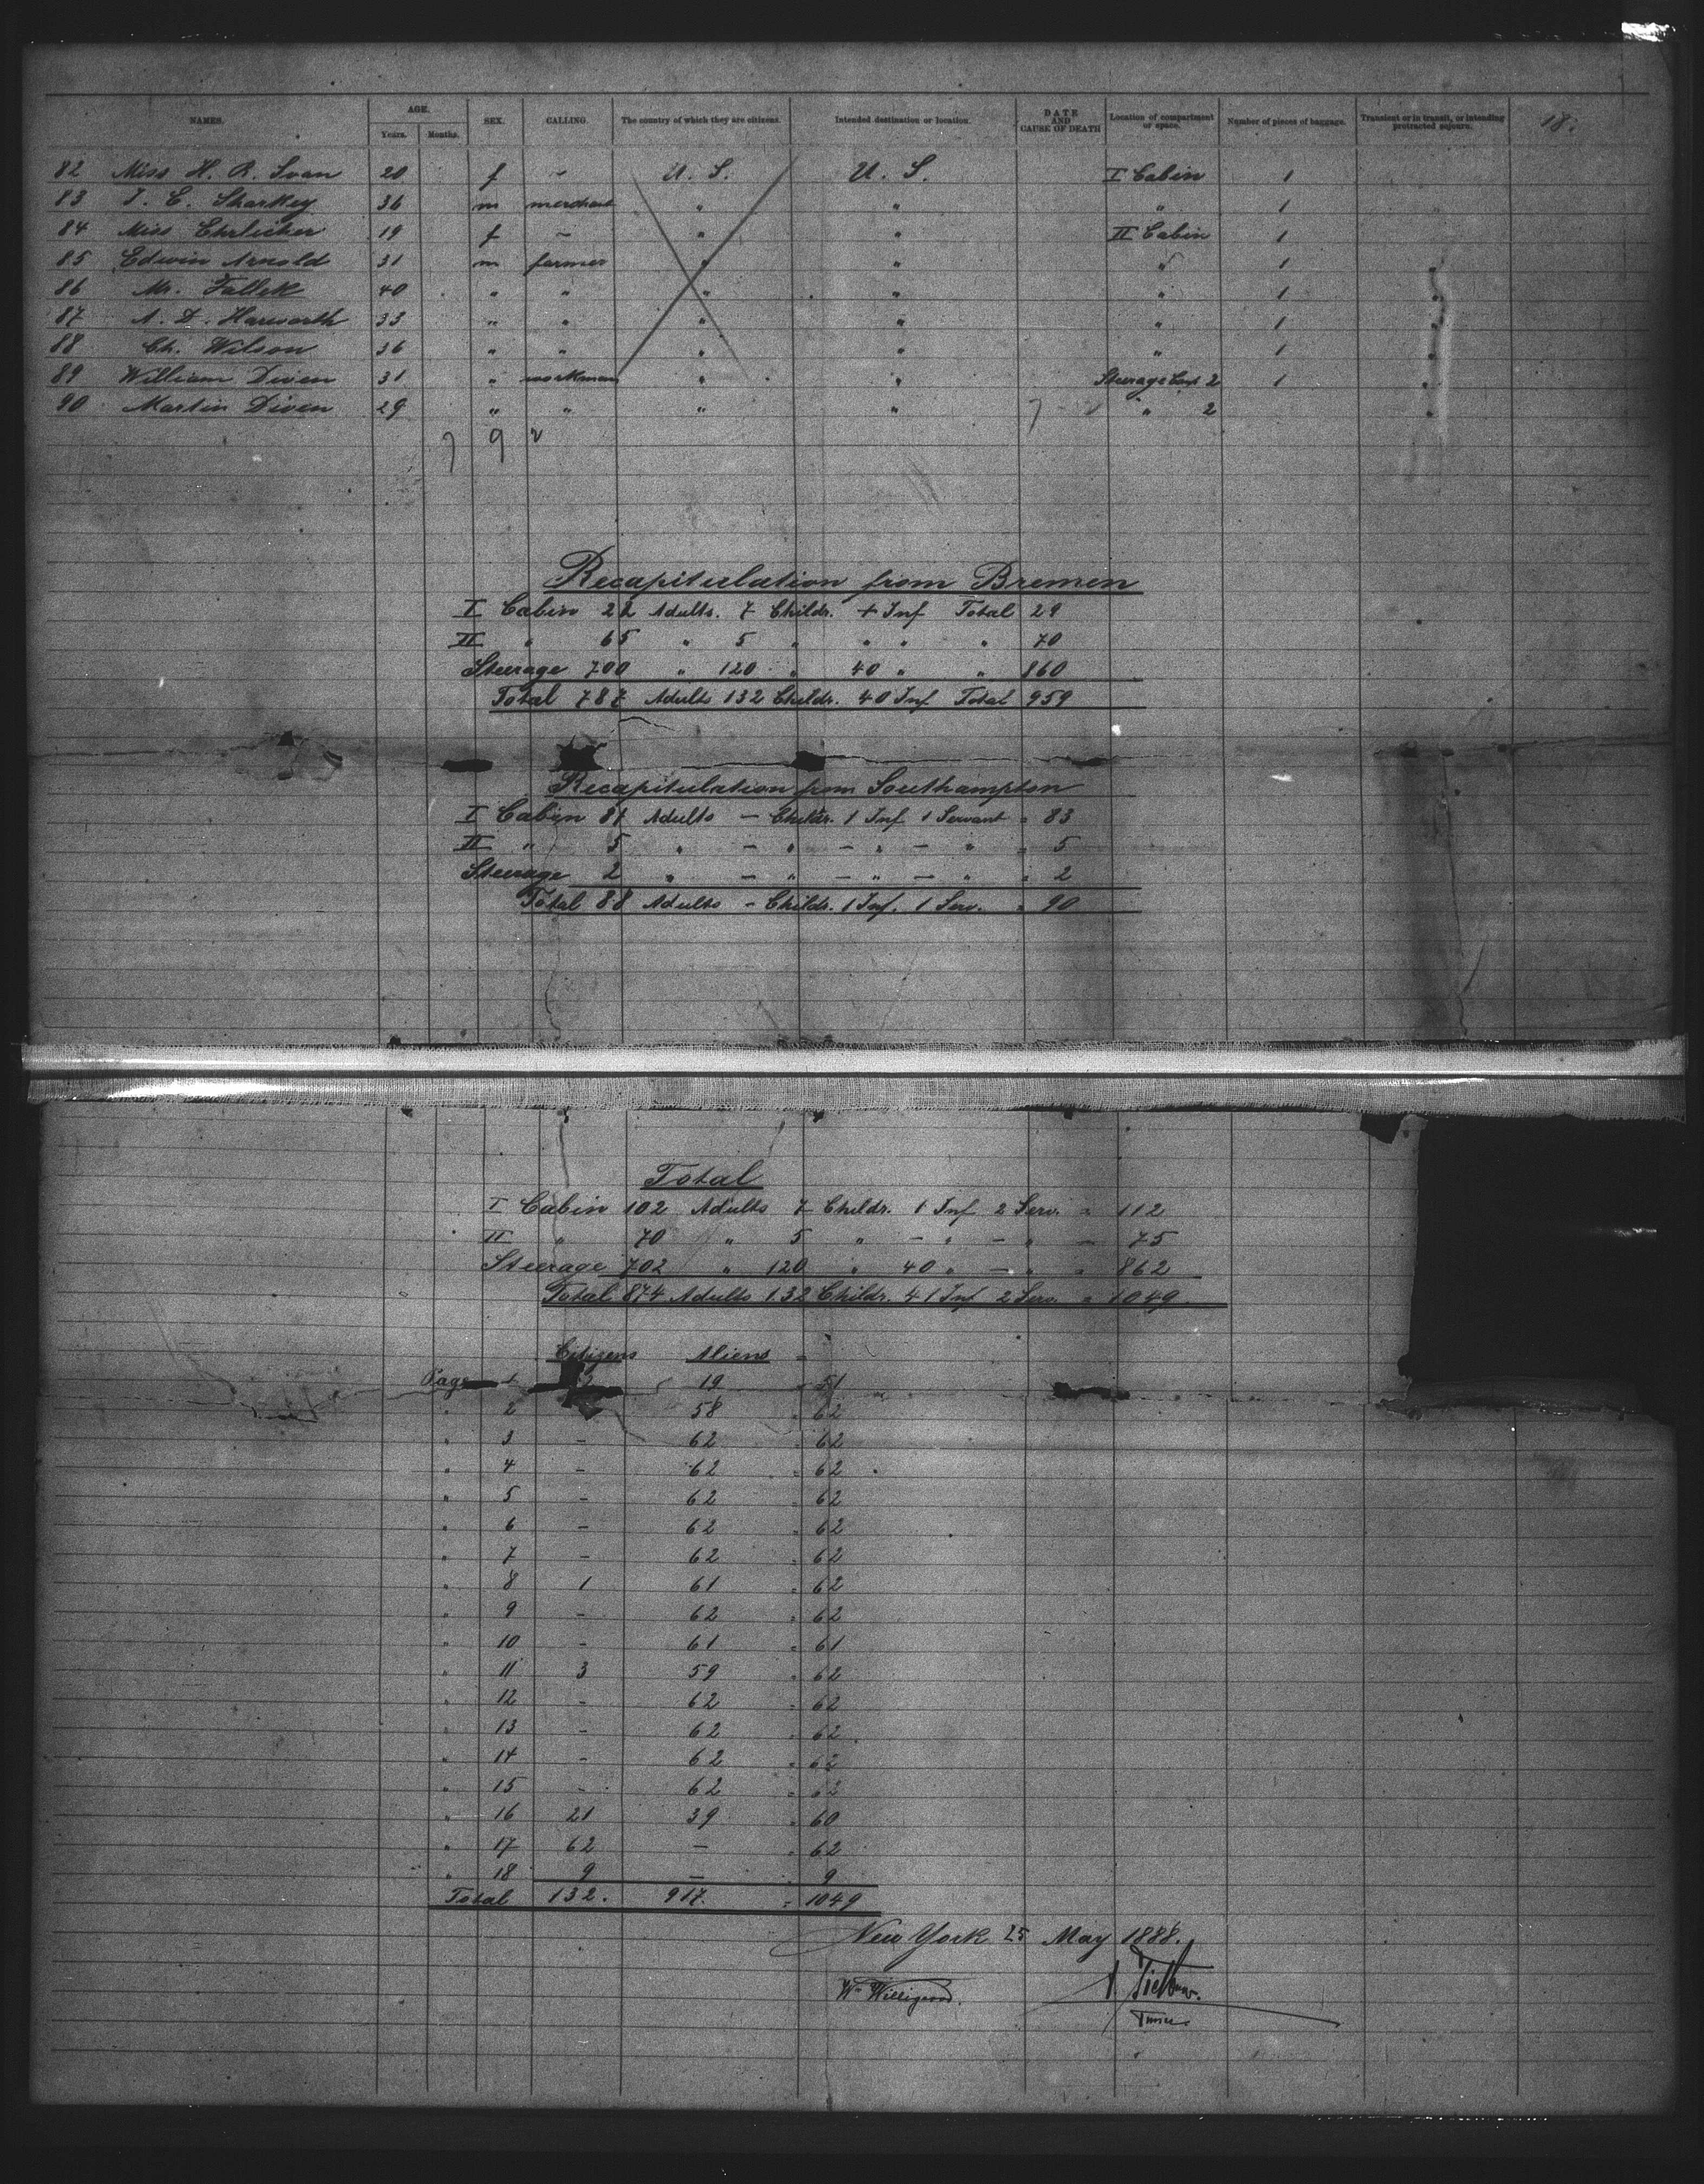 NAMES. AGE. Years. Months. SEX. CALLING. The country of which they are citizens. Intended destination or location. DATE AND CAUSE OF DEATH Location of compartment or space. Number of pieces of baggage. Transient or in transit, or intending protracted sojourn. 18.
82 Miss H. R. 20 f - U. S. U. S. I Cabin 1
83 J. C. Sharkey 36 m merchant " " " 1
84 Miss Ehrlicher 19 f - " " II Cabin 1
85 Edwin Arnold 31 m farmer " " " 1 "
86 Mr. Fallek 40 " " " " " 1 "
87 A. D. Harworth 33 " " " " " 1 "
88 Ch. Wilson 36 " " " " " 1 "
89 William Diven 31 " workman " " Steerage Comp 2 1 "
90 Martin Diven 29 " " " " " 2 "
7 9 2
Recapitulation from Bremen
I Cabin 22 Adults. 7 Childr. + Inf Total 29
II " 65 " 5 " " " " 70
Steerage 700 " 120 " 40 " " 860
Total 787 Adults 132 Childr. 40 Inf Total 959
Recapitulation from Southampton
I Cabin 81 Adults - Childr. 1 Inf 1 Servant = 83
II " 5 " - " - " - " = 5
Steerage 2 " - " - " - " = 2
Total 88 Adults - Childr. 1 Inf. 1 Serv. = 90
Total
I Cabin 102 Adults 7 Childr. 1 Inf 2 Serv. = 112
II " 70 " 5 " - " - " = 75
Steerage 702 " 120 " 40 " - " = 862
Total 874 Adults 132 Childr. 41 Inf 2 Serv. = 1049
Citizens Aliens =
Page 1 19 = 51
" 2 58 = 62
" 3 - 62 = 62
" 4 - 62 = 62
" 5 - 62 = 62
" 6 - 62 = 62
" 7 - 62 = 62
" 8 1 61 = 62
" 9 - 62 = 62
" 10 - 61 = 61
" 11 3 59 = 62
" 12 - 62 = 62
" 13 - 62 = 62
" 14 - 62 = 62
" 15 - 62 = 62
" 16 21 39 = 60
" 17 62 - = 62
" 18 9 - = 9
Total 132. 917. = 1049
New York 25 May 1888.
Wm Willigerod.